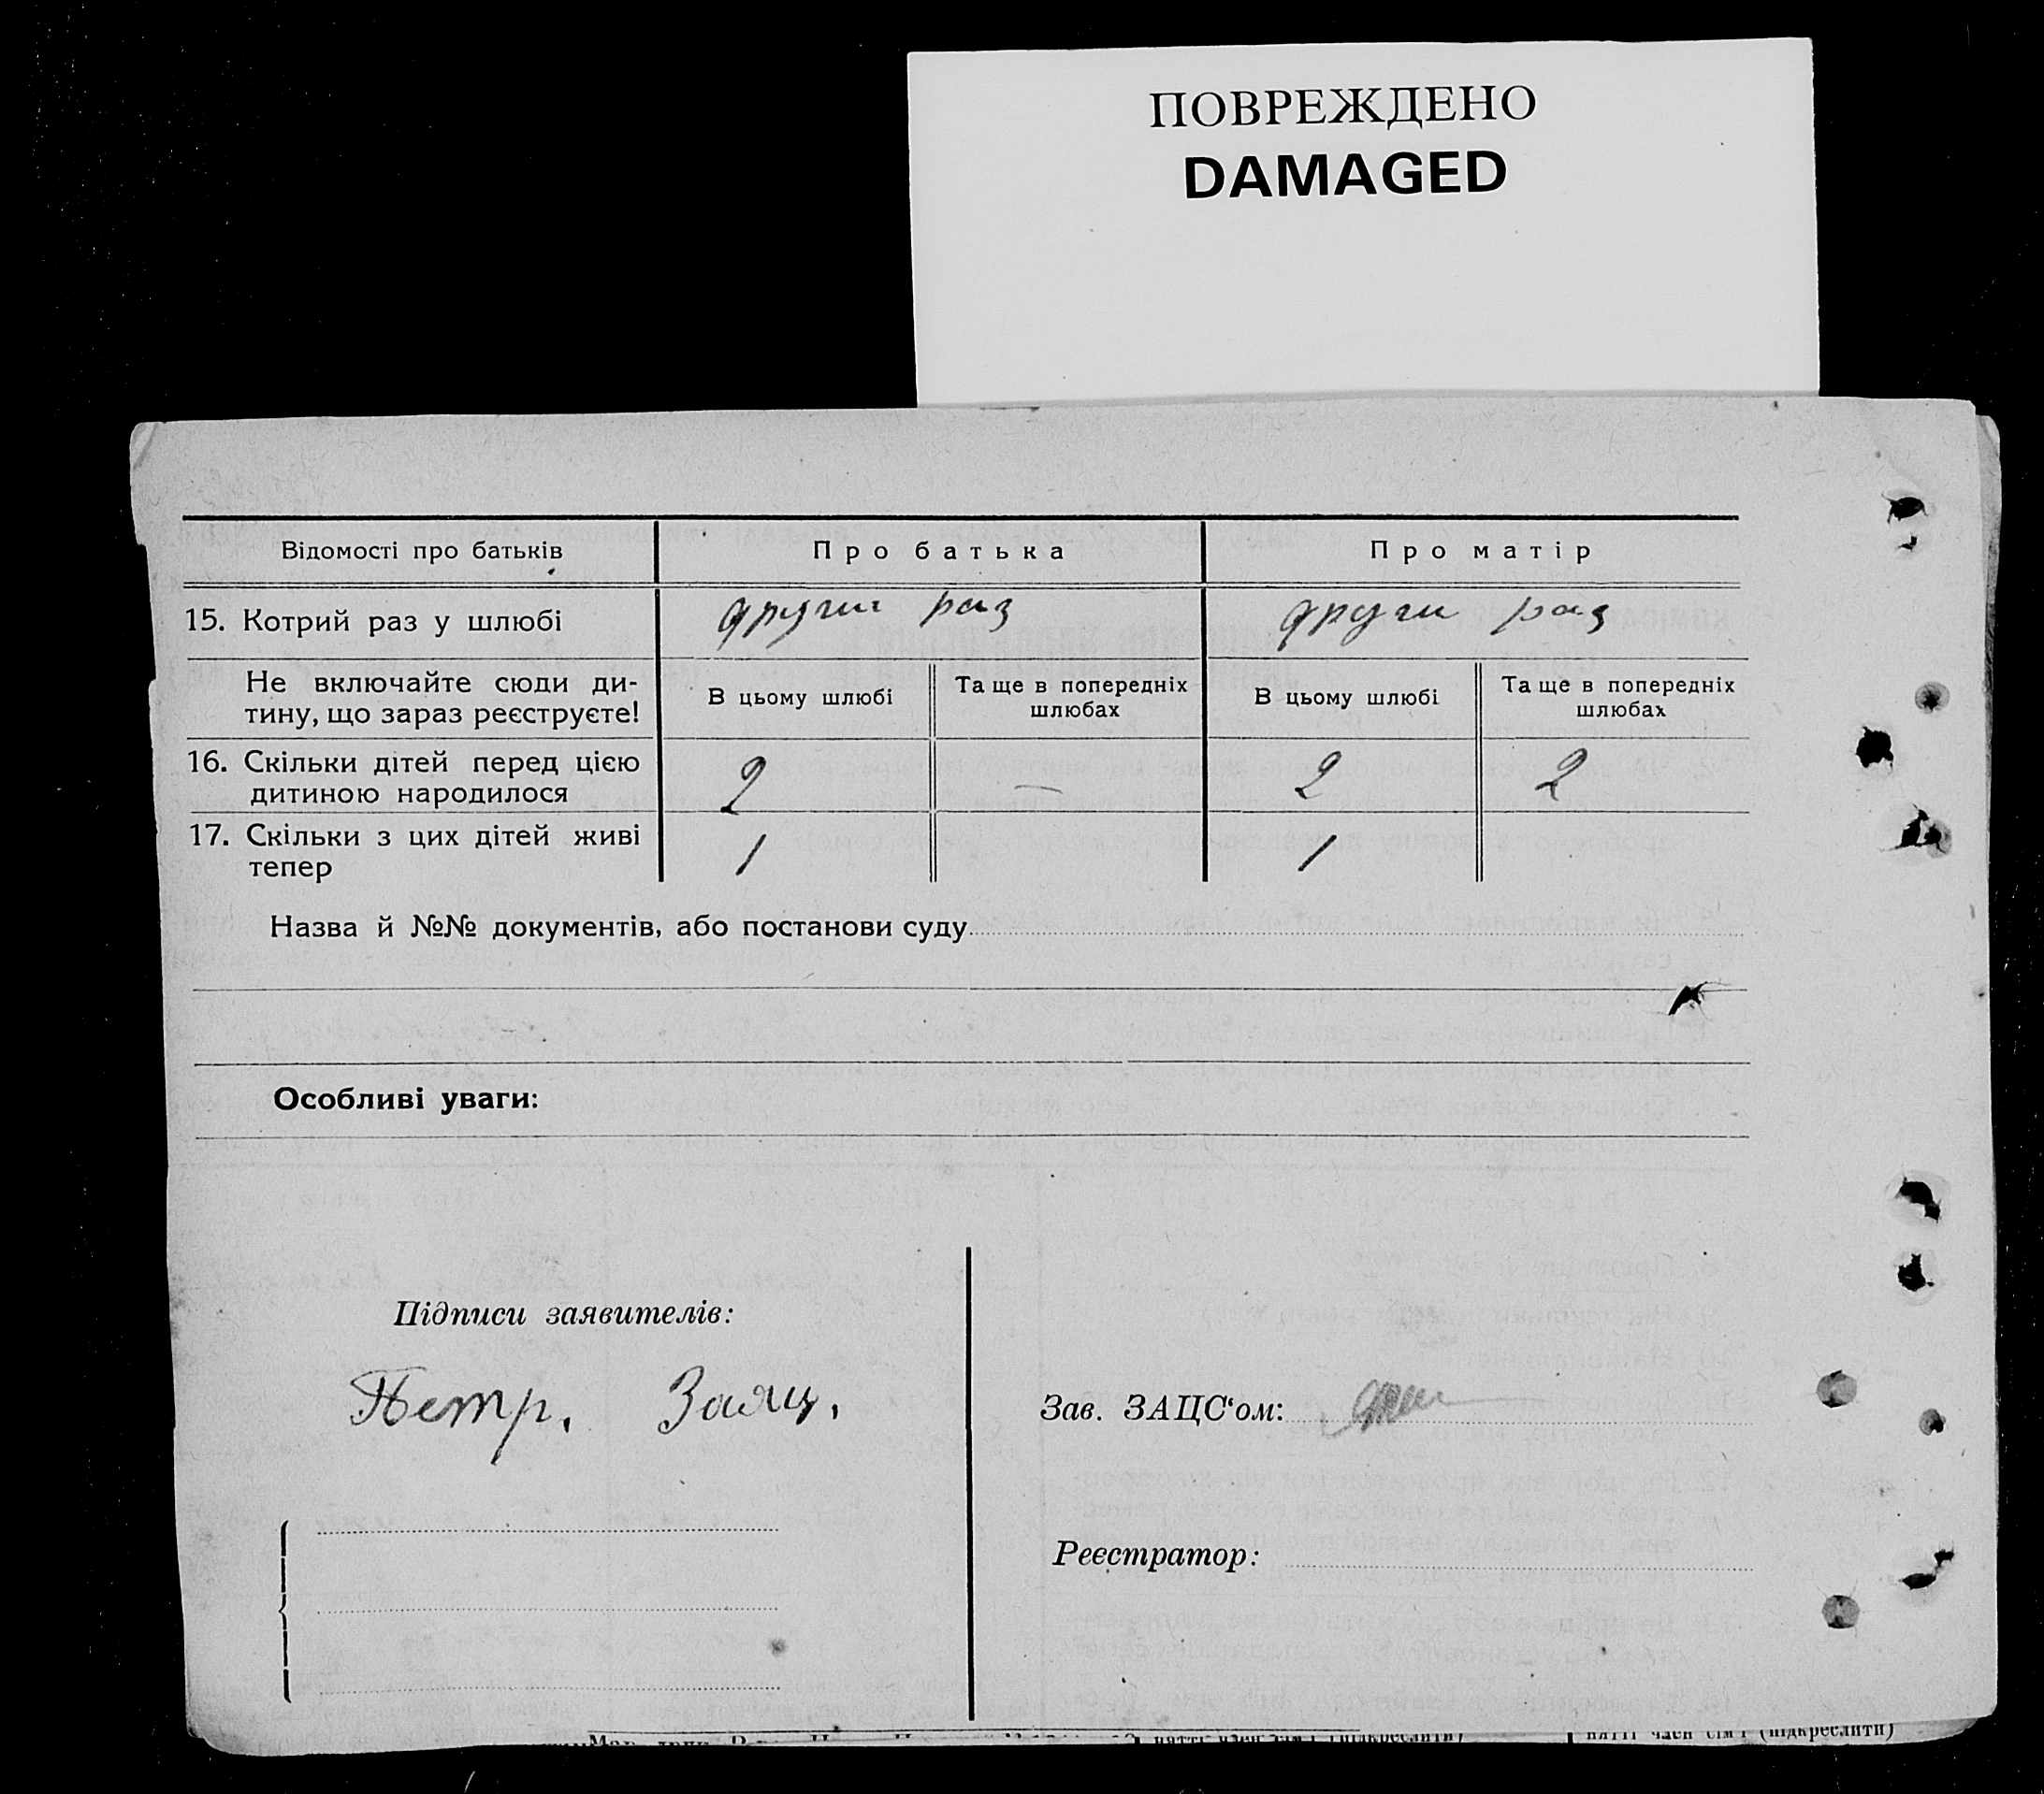 ПОВРЕЖДЕНО
DAMAGED
Відомості про батьків
Про батька
Про матір
15. Котрий раз у шлюбі
други раз
други раз
Не включайте сюди ди-
тину, що зараз реєструєте!
В цьому шлюбі
Та ще в попередніх
шлюбах
В цьому шлюбі
Та ще в попередніх
шлюбах
16. Скільки дітей перед цією
дитиною народилося
2
—
2
2
17. Скільки з цих дітей живі
тепер
1
1
Назва й №№ документів, або постанови суду
Особливі уваги:
Підписи заявителів:
Петр. Заяц.
Зав. ЗАЦС‘ом:
Реєстратор:
член сім'ї (підкреслити)